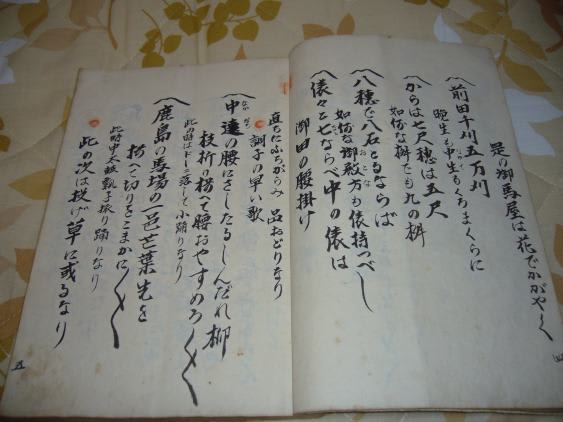 其の御馬屋は花でかがやく
〽前田千刈五万刈
晩生も中生もくろまくらに
〽からは七尺穂は五尺
如何な桝でも九の桝
〽八穂で八石とるならば
如何な御殿方も俵持つべし
〽俵々と七ならべ中の俵は
御田の腰掛け
直ちにふちがらみ 品おどりなり
調子の早い歌
〽中達の腰にさしたるしんだれ柳
枝折り揃へて腰おやすめろ〱
此の時はドーニ落して小踊りなり
〽鹿島の馬場の一邑芒葉先を
揃へて切りをこまかに〱
此時中太鼓調子振り踊りなり
此の次は投げ草に或るなり
五